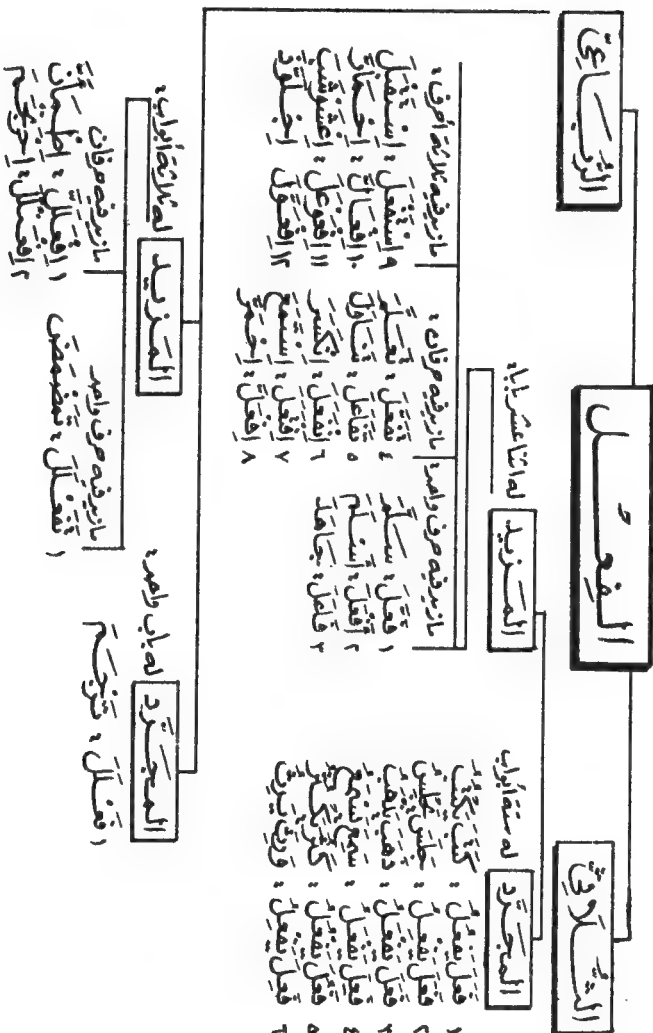 الفِعْـل
الثُّلَاثِيّ
المُجَرَّد
له ستة أبواب :
١ فَعَلَ يَفْعُلُ : كَتَبَ يَكْتُبُ
٢ فَعَلَ يَفْعِلُ : جَلَسَ يَجْلِسُ
٣ فَعَلَ يَفْعَلُ : ذَهَبَ يَذْهَبُ
٤ فَعِلَ يَفْعَلُ : سَمِعَ يَسْمَعُ
٥ فَعُلَ يَفْعُلُ : كَثُرَ يَكْثُرُ
٦ فَعِلَ يَفْعِلُ : وَرِثَ يَرِثُ
المَزِيد
له اثنا عشر بابا :
ما زيد فيه حرف واحد :
١ فَعَّلَ : سَلَّمَ
٢ أَفْعَلَ : أَسْلَمَ
٣ فَاعَلَ : جَاهَدَ
ما زيد فيه حرفان :
٤ تَفَعَّلَ : تَعَلَّمَ
٥ تَفَاعَلَ : تَنَاوَلَ
٦ اِنْفَعَلَ : اِنْكَسَرَ
٧ اِفْتَعَلَ : اِسْتَمَعَ
٨ اِفْعَلَّ : اِحْمَرَّ
ما زيد فيه ثلاثة أحرف :
٩ اِسْتَفْعَلَ : اِسْتَقْبَلَ
١٠ اِفْعَالَّ : اِحْمَارَّ
١١ اِفْعَوْعَلَ : اِعْشَوْشَبَ
١٢ اِفْعَوَّلَ : اِجْلَوَّذَ
الرُّبَاعِيّ
المُجَرَّد
له باب واحد :
١ فَعْلَلَ : تَرْجَمَ
المَزِيد
له ثلاثة أبواب :
ما زيد فيه حرف واحد
١ تَفَعْلَلَ : تَمَضْمَضَ
ما زيد فيه حرفان
١ اِفْعَلَلَّ : اِطْمَأَنَّ
٢ اِفْعَنْلَلَ : اِحْرَنْجَمَ